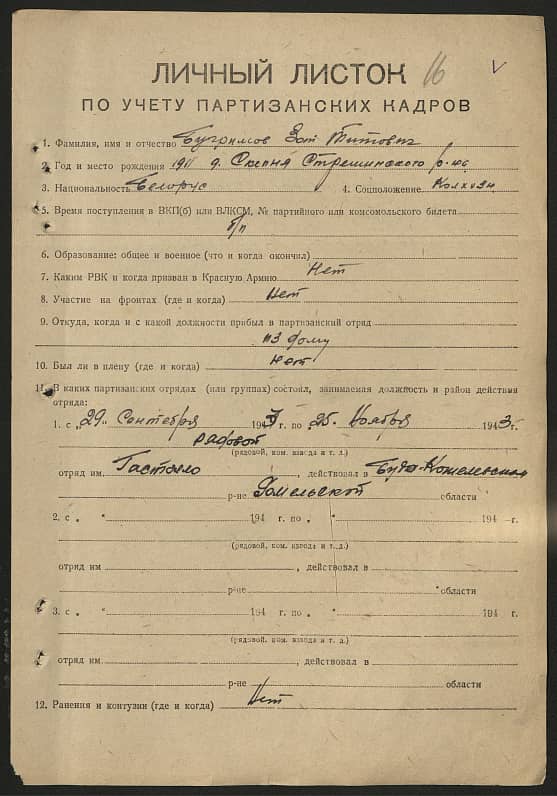 ЛИЧНЫЙ ЛИСТОК 16
ПО УЧЕТУ ПАРТИЗАНСКИХ КАДРОВ
1. Фамилия, имя и отчество Бугримов Зот Титович
2. Год и место рождения 1911 д. Скепня Стрешинского р-на
3. Национальность Белорус 4. Соцположение Колхозн
5. Время поступления в ВКП(б) или ВЛКСМ, № партийного или комсомольского билета
б/п
6. Образование: общее и военное (что и когда окончил)
7. Каким РВК и когда призван в Красную Армию Нет
8. Участие на фронтах (где и когда) Нет
9. Откуда, когда и с какой должности прибыл в партизанский отряд
из дому
10. Был ли в плену (где и когда) Нет
11. В каких партизанских отрядах (или группах) состоял, занимаемая должность и район действия
отряда:
1. с „29" Сентября 1943 г. по „25. Ноября 1943 г.
рядовой
(рядовой, ком. взвода и т. д.)
отряд им. Гастелло, действовал в Буда-Кошелевском
р-не Гомельской области
2. с „ " 194 г. по „ " 194 г.
(рядовой, ком. взвода и т. д.)
отряд им , действовал в
р-не области
3. с „ " 194 г. по „ " 194 г.
(рядовой, ком. взвода и т. д.)
отряд им. , действовал в
р-не области
12. Ранения и контузии (где и когда) Нет